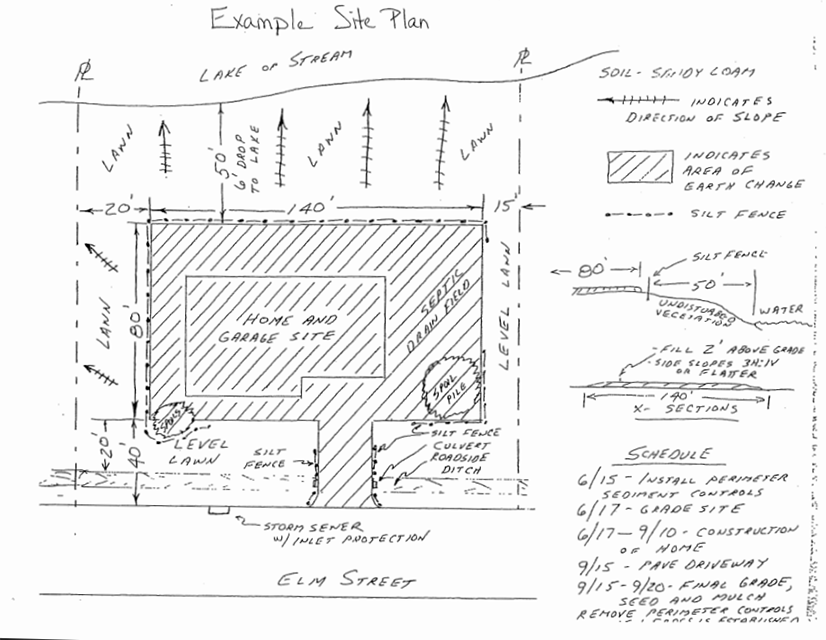 Example Site Plan
LAKE OR STREAM
SOIL - SANDY LOAM
INDICATES
DIRECTION OF SLOPE
INDICATES
AREA OF
EARTH CHANGE
SILT FENCE
LAWN
LAWN
LAWN
50'
6' DROP
TO LAKE
20'
140'
15'
LAWN
80'
HOME AND
GARAGE SITE
SEPTIC
DRAIN FIELD
LEVEL LAWN
SPOIL
PILE
80'
SILT FENCE
50'
UNDISTURBED
VEGETATION
WATER
- FILL 2' ABOVE GRADE
- SIDE SLOPES 3H:1V
OR FLATTER
140'
X- SECTIONS
20'
40'
LEVEL
LAWN
SILT
FENCE
SILT FENCE
CULVERT
ROADSIDE
DITCH
STORM SEWER
W/ INLET PROTECTION
ELM STREET
SCHEDULE
6/15 - INSTALL PERIMETER
SEDIMENT CONTROLS
6/17 - GRADE SITE
6/17 - 9/10 - CONSTRUCTION
OF HOME
9/15 - PAVE DRIVEWAY
9/15-9/20 - FINAL GRADE,
SEED AND MULCH
REMOVE PERIMETER CONTROLS
IS ESTABLISHED